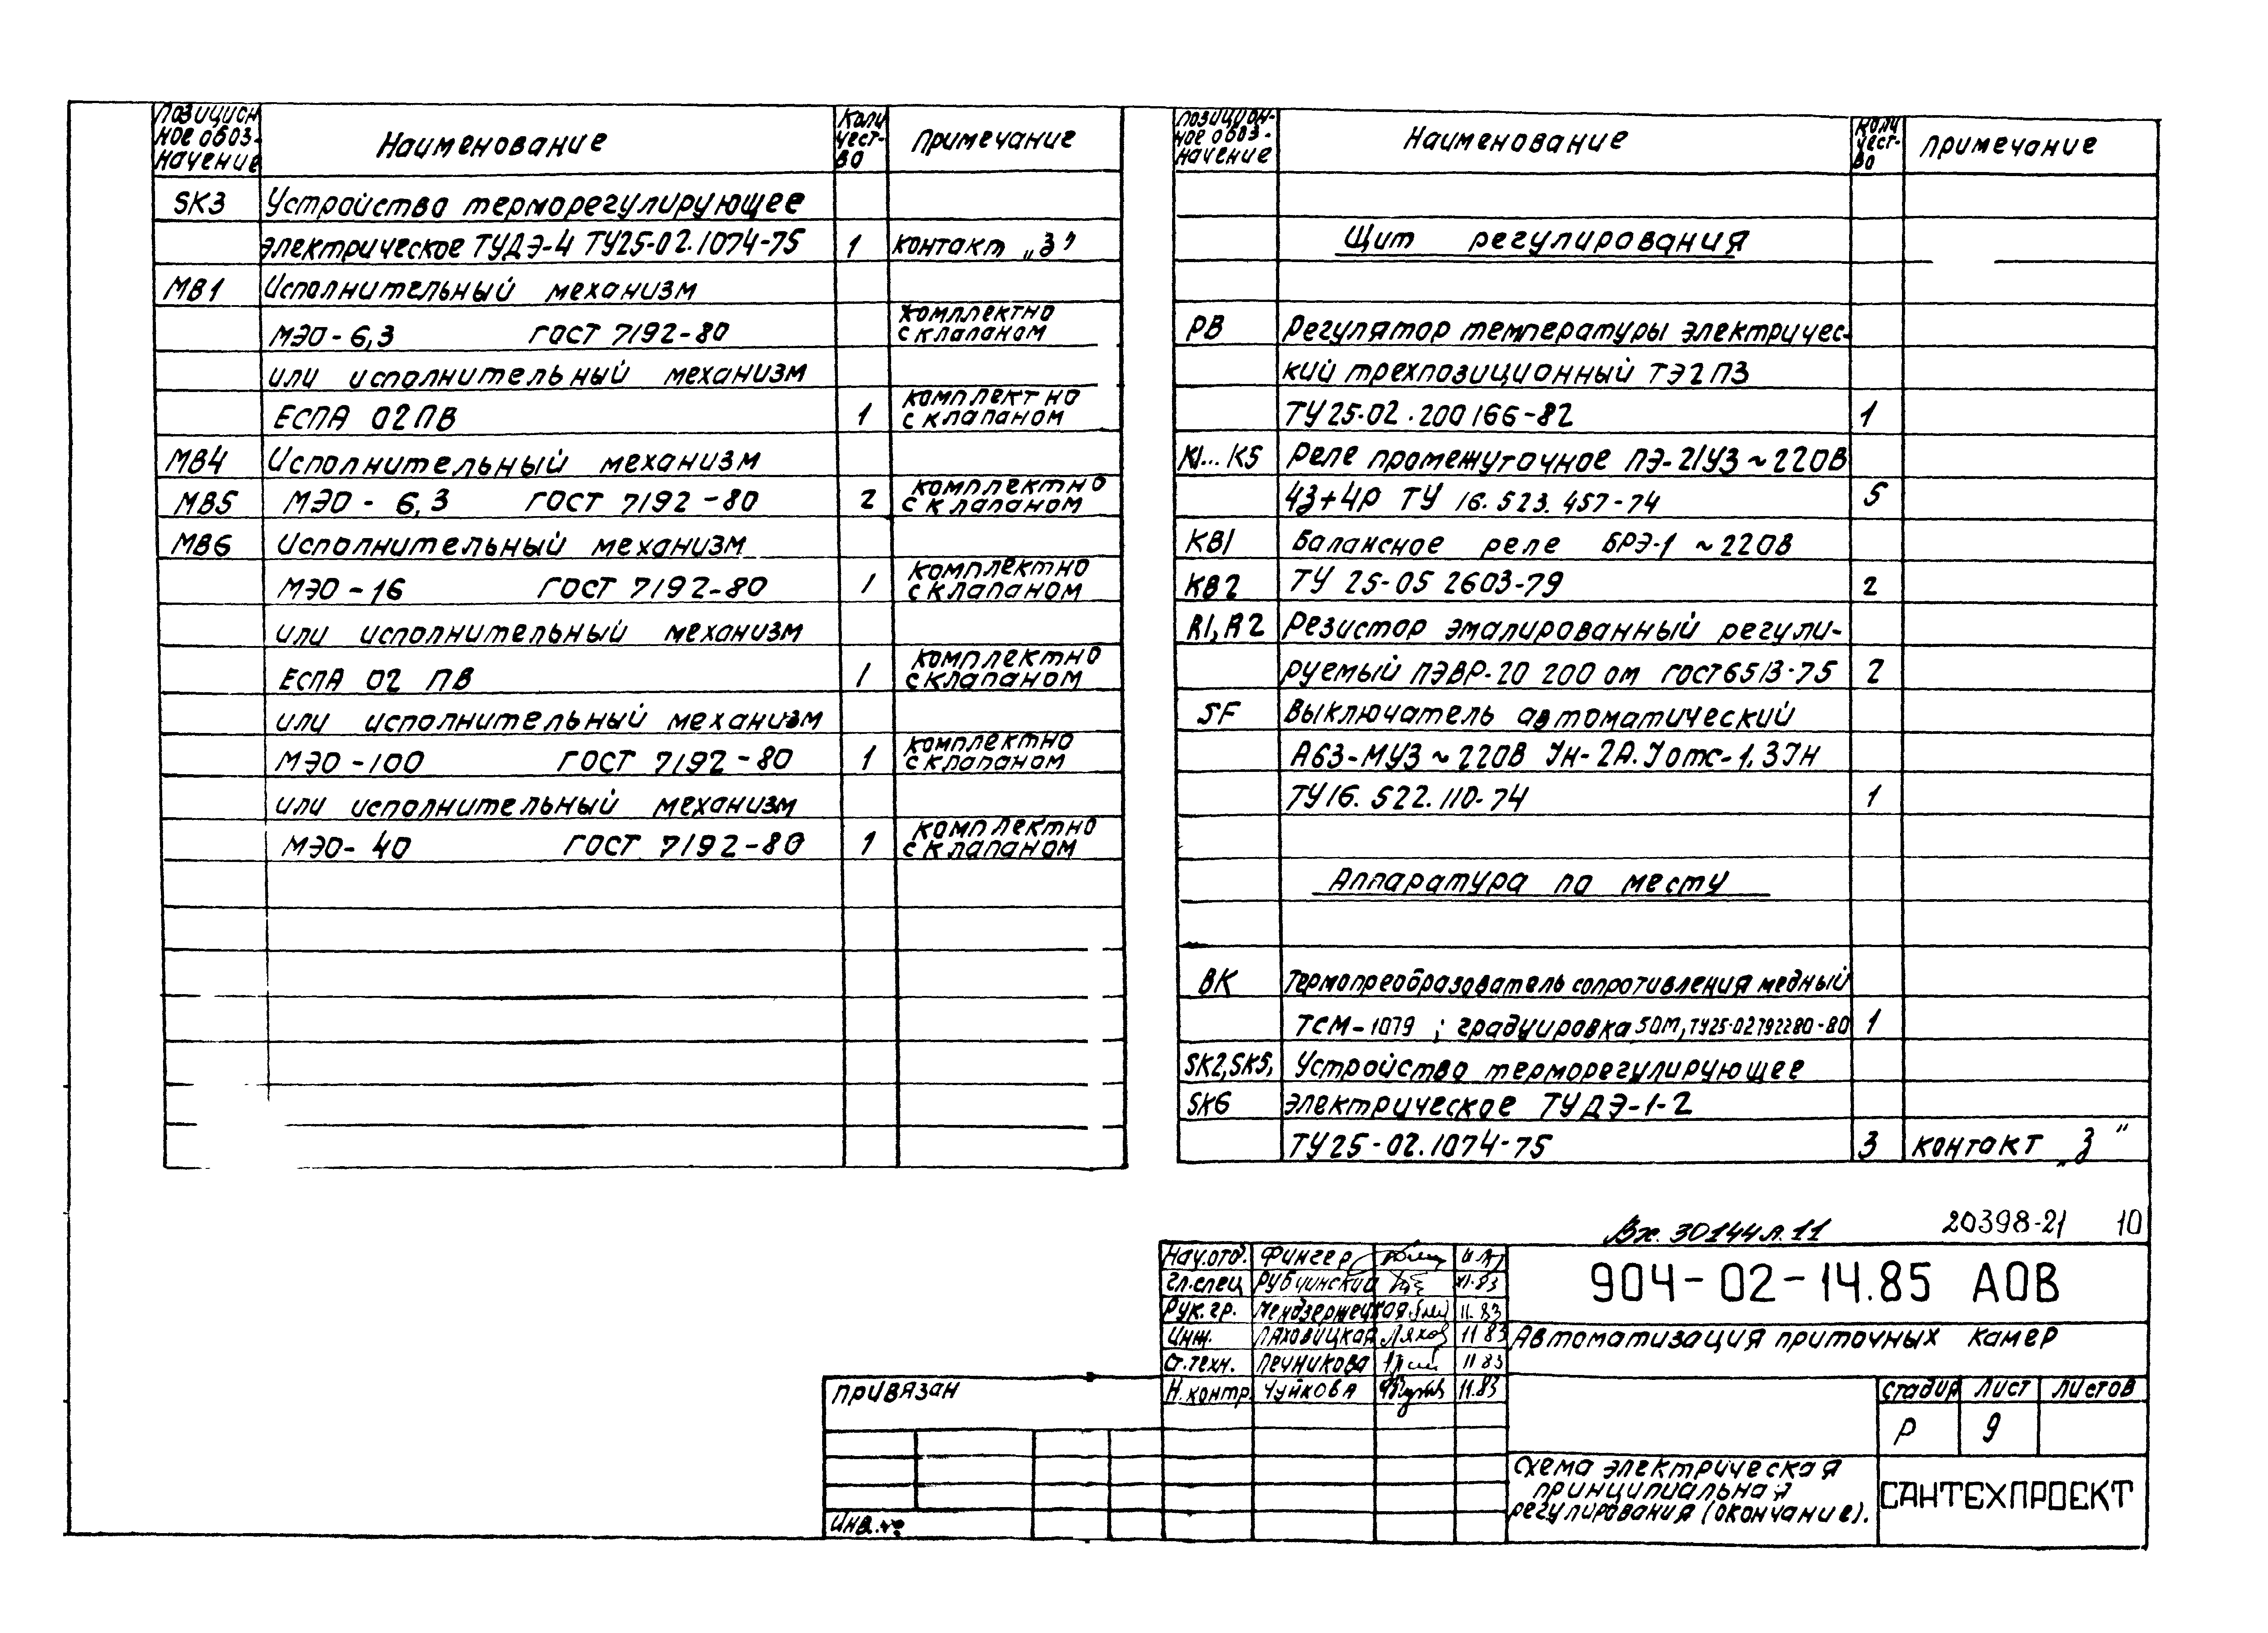 Позицион
ное обоз-
начение
Наименование
Коли
чест-
во
Примечание
SK3 Устройство терморегулирующее
электрическое ТУДЭ-4 ТУ25-02.1074-75 1 контакт „З”
МВ1 Исполнительный механизм
МЭО-6,3 ГОСТ 7192-80 комплектно
с клапаном
или исполнительный механизм
ЕСПА 02ПВ 1 комплектно
с клапаном
МВ4 Исполнительный механизм
МВ5 МЭО - 6,3 ГОСТ 7192-80 2 комплектно
с клапаном
МВ6 Исполнительный механизм
МЭО-16 ГОСТ 7192-80 1 комплектно
с клапаном
или исполнительный механизм
ЕСПА 02 ПВ 1 комплектно
с клапаном
или исполнительный механизм
МЭО-100 ГОСТ 7192-80 1 комплектно
с клапаном
или исполнительный механизм
МЭО-40 ГОСТ 7192-80 1 комплектно
с клапаном
Позицион-
ное обоз-
начение
Наименование
Коли
чест-
во
Примечание
Щит регулирования
РВ Регулятор температуры электричес-
кий трехпозиционный ТЭ2П3
ТУ25-02.200166-82 1
К1...К5 Реле промежуточное ПЭ-21У3 ~220В
4з+4р ТУ 16.523.457-74 5
КВ1 Балансное реле БРЭ-1 ~220В
КВ2 ТУ 25-05 2603-79 2
R1,R2 Резистор эмалированный регули-
руемый ПЭВР-20 200 ом ГОСТ6513-75 2
SF Выключатель автоматический
А63-МУ3~220В Iн-2А.Iотс-1,3Iн
ТУ16.522.110-74 1
Аппаратура по месту
ВК Термопреобразователь сопротивления медный
ТСМ-1079 ; градуировка 50М, ТУ25-02792280-80 1
SK2,SK5, Устройство терморегулирующее
SK6 электрическое ТУДЭ-1-2
ТУ25-02.1074-75 3 контакт „З”
Вх. 30144л.11 20398-21 10
Нач.отд. Фингер
Гл.спец Рубчинский XI.83
Рук.гр. Мендзержецкая 11.83
Инж. Ляховицкая Ляхов 11 83
Ст.техн. Печникова 11 83
Н.контр. Чуйкова 11.83
904-02-14.85 АОВ
Автоматизация приточных камер
Стадия Лист Листов
Р 9
Схема электрическая
принципиальная
регулирования (окончание).
САНТЕХПРОЕКТ
Привязан
Инв.№